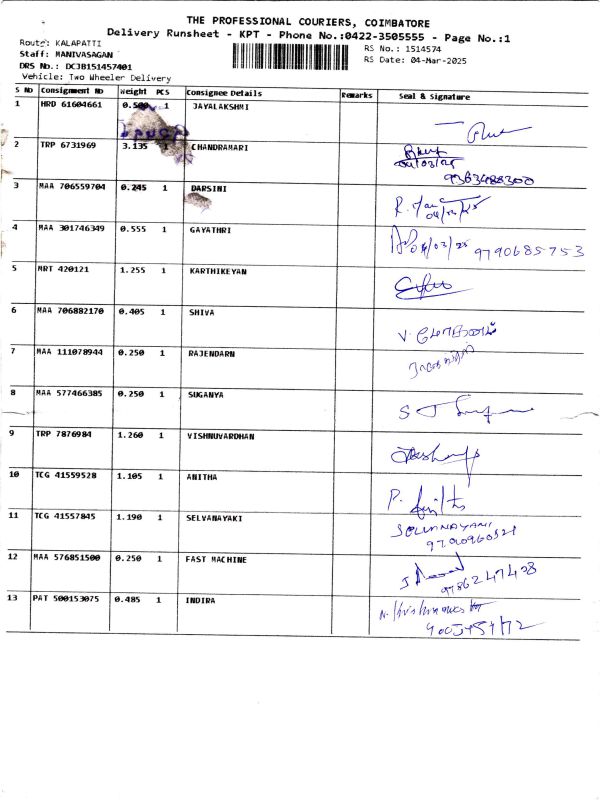 THE PROFESSIONAL COURIERS, COIMBATORE
Delivery Runsheet - KPT - Phone No.:0422-3505555 - Page No.:1
Route: KALAPATTI
RS No.: 1514574
Staff: MANIVASAGAN
RS Date: 04-Mar-2025
DRS No.: DCJB151457401
Vehicle: Two Wheeler Delivery
S No Consignment No Weight PCS Consignee Details Remarks Seal & Signature
1 HRD 61604661 0.500 1 JAYALAKSHMI
2 TRP 6731969 3.135 1 CHANDRAMARI
04/03/25
9363488300
3 MAA 706559704 0.245 1 DARSINI
R.
4 MAA 301746349 0.555 1 GAYATHRI
9790685753
5 MRT 420121 1.255 1 KARTHIKEYAN
6 MAA 706882170 0.405 1 SHIVA
V.
7 MAA 111078944 0.250 1 RAJENDARN
8 MAA 577466385 0.250 1 SUGANYA
S J
9 TRP 7876984 1.260 1 VISHNUVARDHAN
10 TCG 41559528 1.105 1 ANITHA
P.
11 TCG 41557845 1.190 1 SELVANAYAKI
12 MAA 576851500 0.250 1 FAST MACHINE
J
13 PAT 500153075 0.485 1 INDIRA
N.